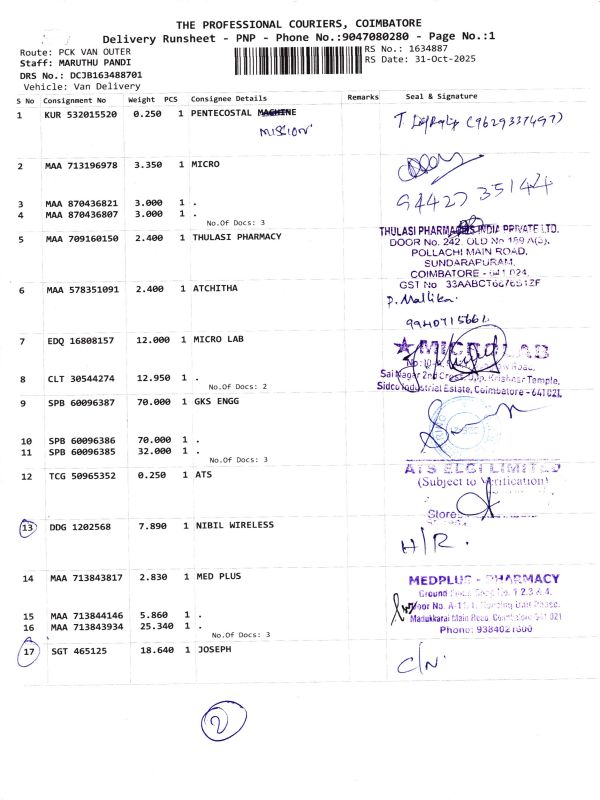 THE PROFESSIONAL COURIERS, COIMBATORE
Delivery Runsheet - PNP - Phone No.:9047080280 - Page No.:1
Route: PCK VAN OUTER
RS No.: 1634887
Staff: MARUTHU PANDI
RS Date: 31-Oct-2025
DRS No.: DCJB163488701
Vehicle: Van Delivery
S No Consignment No Weight PCS Consignee Details Remarks Seal & Signature
1 KUR 532015520 0.250 1 PENTECOSTAL MACHINE
MISSION
(9629337497)
2 MAA 713196978 3.350 1 MICRO
94427 35144
3 MAA 870436821 3.000 1 .
4 MAA 870436807 3.000 1 .
No.Of Docs: 3
5 MAA 709160150 2.400 1 THULASI PHARMACY
THULASI PHARMACIES INDIA PRIVATE LTD.
DOOR No. 242, OLD No 189 A(3),
POLLACHI MAIN ROAD,
SUNDARAPURAM,
COIMBATORE - 641 024,
GST No
6 MAA 578351091 2.400 1 ATCHITHA
P. Mallika.
7 EDQ 16808157 12.000 1 MICRO LAB
MICRO LAB
Road,
Sai Nagar 2nd Cross, Opp. Krishnar Temple,
Sidco Industrial Estate, Coimbatore - 641 021.
8 CLT 30544274 12.950 1 .
No.Of Docs: 2
9 SPB 60096387 70.000 1 GKS ENGG
10 SPB 60096386 70.000 1 .
11 SPB 60096385 32.000 1 .
No.Of Docs: 3
12 TCG 50965352 0.250 1 ATS
ATS ELGI LIMITED
(Subject to Verification)
Stores
13 DDG 1202568 7.890 1 NIBIL WIRELESS
H/R.
14 MAA 713843817 2.830 1 MED PLUS
MEDPLUS - PHARMACY
Ground No. 1,2,3 & 4,
Door No.
Madukkarai Main Road, Coimbatore-641 021
Phone: 9384021600
15 MAA 713844146 5.860 1 .
16 MAA 713843934 25.340 1 .
No.Of Docs: 3
17 SGT 465125 18.640 1 JOSEPH
C/N.
2